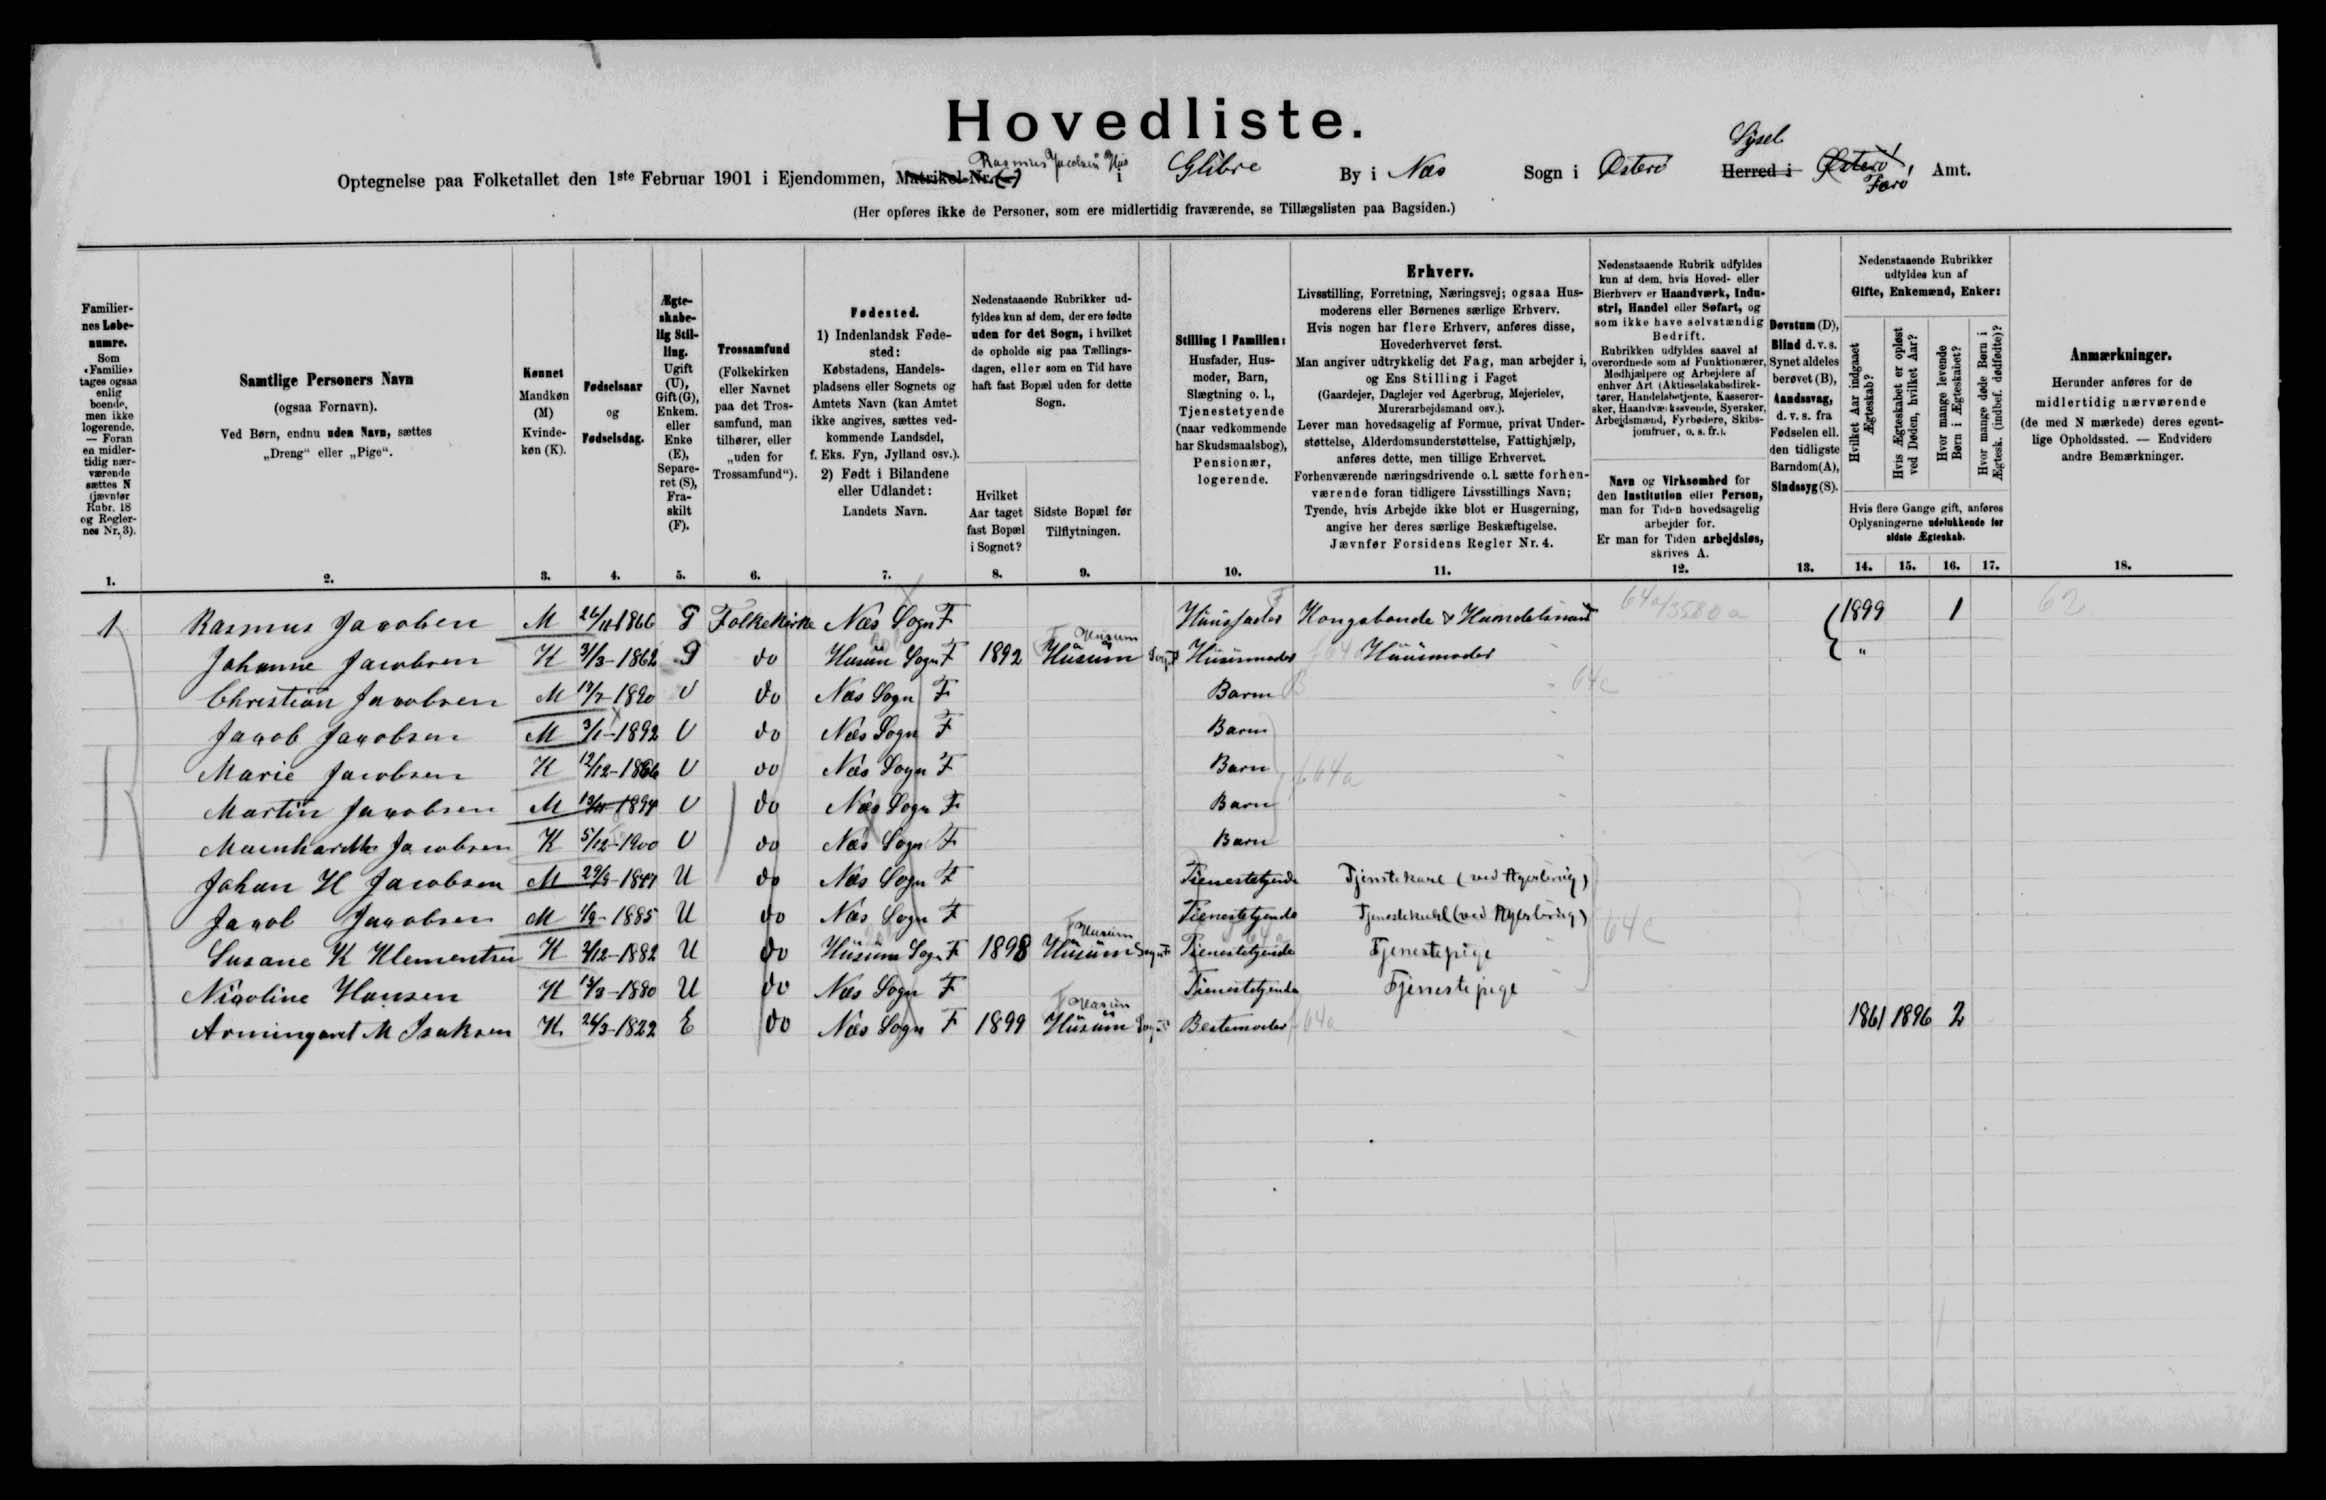 Hovedliste.
Optegnelse paa Folketallet den 1ste Februar 1901 i Ejendommen, Matrikel-Nr. Rasmus Jacobsens Hus i Glibre By i Næs Sogn i Østerø Sysel Herred i Østerø Færø Amt.
(Her opføres ikke de Personer, som ere midlertidig fraværende, se Tillægslisten paa Bagsiden.)
Familiernes Løbenumre.
Som «Familie» tages ogsaa enlig boende, men ikke logerende. — Foran en midlertidig nærværende sættes N (jævnfør Rubr. 18 og Reglernes Nr. 3).
Samtlige Personers Navn
(ogsaa Fornavn).
Ved Børn, endnu uden Navn, sættes „Dreng“ eller „Pige“.
Kønnet
Mandkøn (M) Kvindekøn (K).
Fødselsaar og Fødselsdag.
Ægteskabelig Stilling.
Ugift (U), Gift (G), Enkem. eller Enke (E), Separeret (S), Fraskilt (F).
Trossamfund
(Folkekirken eller Navnet paa det Trossamfund, man tilhører, eller „uden for Trossamfund“).
Fødested.
1) Indenlandsk Fødested:
Købstadens, Handelspladsens eller Sognets og Amtets Navn (kan Amtet ikke angives, sættes vedkommende Landsdel, f. Eks. Fyn, Jylland osv.).
2) Født i Bilandene eller Udlandet:
Landets Navn.
Nedenstaaende Rubrikker udfyldes kun af dem, der ere fødte uden for det Sogn, i hvilket de opholde sig paa Tællingsdagen, eller som en Tid have haft fast Bopæl uden for dette Sogn.
Hvilket Aar taget fast Bopæl i Sognet?
Sidste Bopæl før Tilflytningen.
Stilling i Familien:
Husfader, Husmoder, Barn, Slægtning o. l., Tjenestetyende (naar vedkommende har Skudsmaalsbog), Pensionær, logerende.
Erhverv.
Livsstilling, Forretning, Næringsvej; ogsaa Husmoderens eller Børnenes særlige Erhverv.
Hvis nogen har flere Erhverv, anføres disse, Hovederhvervet først.
Man angiver udtrykkelig det Fag, man arbejder i, og Ens Stilling i Faget
(Gaardejer, Daglejer ved Agerbrug, Mejerielev, Murerarbejdsmand osv.).
Lever man hovedsagelig af Formue, privat Understøttelse, Alderdomsunderstøttelse, Fattighjælp, anføres dette, men tillige Erhvervet.
Forhenværende næringsdrivende o. l. sætte forhenværende foran tidligere Livsstillings Navn;
Tyende, hvis Arbejde ikke blot er Husgerning, angive her deres særlige Beskæftigelse.
Jævnfør Forsidens Regler Nr. 4.
Nedenstaaende Rubrik udfyldes kun af dem, hvis Hoved- eller Bierhverv er Haandværk, Industri, Handel eller Søfart, og som ikke have selvstændig Bedrift.
Rubrikken udfyldes saavel af overordnede som af Funktionærer, Medhjælpere og Arbejdere af enhver Art (Aktieselskabsdirektører, Handelsbetjente, Kasserersker, Haandværkssvende, Syersker, Arbejdsmænd, Fyrbødere, Skibsjomfruer, o. s. fr.).
Navn og Virksomhed for den Institution eller Person, man for Tiden hovedsagelig arbejder for.
Er man for Tiden arbejdsløs, skrives A.
Døvstum (D), Blind d. v. s. Synet aldeles berøvet (B), Aandssvag, d. v. s. fra Fødselen ell. den tidligste Barndom (A), Sindssyg (S).
Nedenstaaende Rubrikker udfyldes kun af Gifte, Enkemænd, Enker:
Hvilket Aar indgaaet Ægteskab?
Hvis Ægteskabet er opløst ved Døden, hvilket Aar?
Hvor mange levende Børn i Ægteskabet?
Hvor mange døde Børn i Ægtesk. (indbef. dødfødte)?
Hvis flere Gange gift, anføres Oplysningerne udelukkende for sidste Ægteskab.
Anmærkninger.
Herunder anføres for de midlertidig nærværende (de med N mærkede) deres egentlige Opholdssted. — Endvidere andre Bemærkninger.
1. 2. 3. 4. 5. 6. 7. 8. 9. 10. 11. 12. 13. 14. 15. 16. 17. 18.
1 Rasmus Jacobsen M 1866 G Folkekirke Næs Sogn F Huusfader Kongsbonde & Handelsmand 1899 1 62
Johanne Jacobsen K 31/3-1862 G do Husum Sogn F 1892 Husum Husum Sogn Huusmoder Huusmoder "
Christian Jacobsen M 1890 U do Næs Sogn F Barn 64c
Jacob Jacobsen M 3/1-1892 U do Næs Sogn F Barn
Marie Jacobsen K 12/12-1896 U do Næs Sogn F Barn 64a
Martin Jacobsen M 1894 U do Næs Sogn F Barn
Jacobsen K 5/12-1900 U do Næs Sogn F Barn
Johan H Jacobsen M 1847 U do Næs Sogn F Tienestetyende Tjenstekarl (ved Agerbrug)
Jacob Jacobsen M 1/9-1885 U do Næs Sogn F Tienestetyende Tjenestekarl (ved Agerbrug) 64c
Susane K Klementsen K 2/12-1882 U do Husum Sogn F 1898 Husum Husum Sogn Tienestetyende Tjenestepige
Nicoline Hansen K 1880 U do Næs Sogn F Tienestetyende Tjenestepige
Armingaret M Isaksen K 26/3-1822 E do Næs Sogn F 1899 Husum Husum Sogn Bestemoder 64a 1861 1896 2